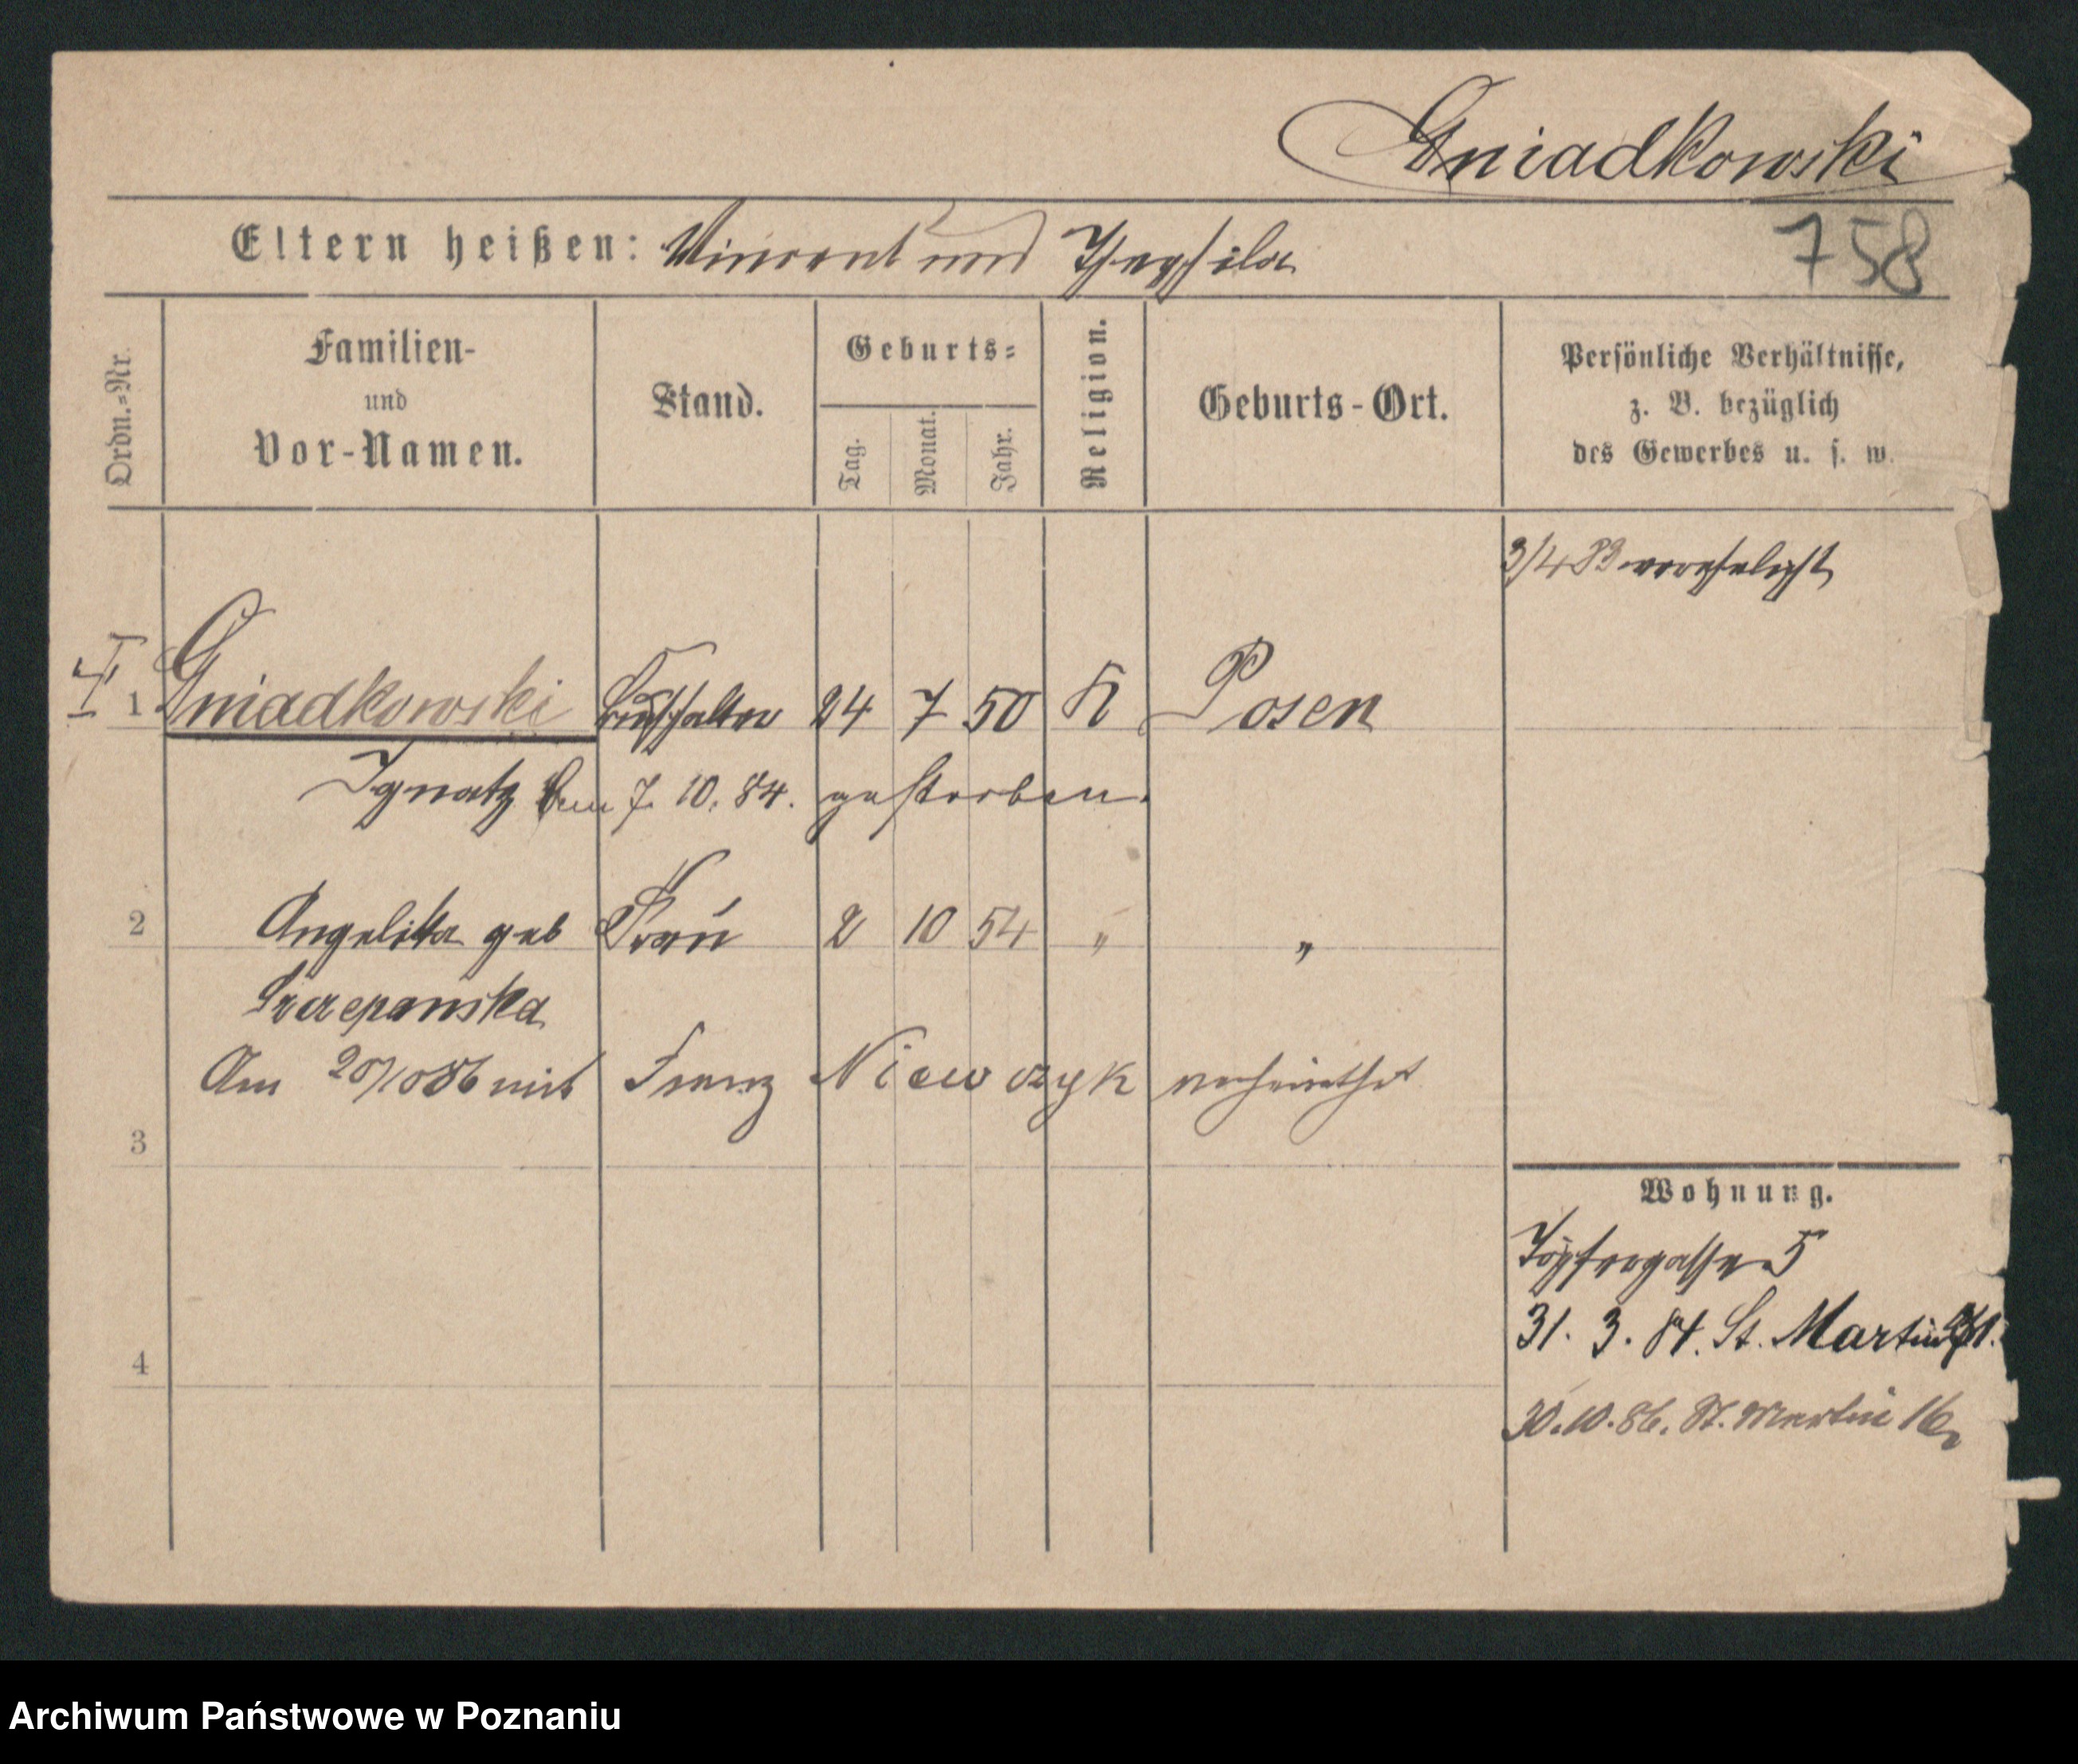 Gniadkowski
758
Eltern heißen: Vincent und Thephila
Ordn.-Nr.
Familien-
und
Vor-Namen.
Stand.
Geburts-
Tag.
Monat.
Jahr.
Religion.
Geburts-Ort.
Persönliche Verhältnisse,
z. B. bezüglich
des Gewerbes u. s. w.
3/4 83 verehelicht
1 Gniadkowski Buchhalter 24 7 50 K Posen
Ignatz Am 7. 10. 84. gestorben.
2 Angelika geb Frau 2 10 54 " "
Szczepanska
Am 20/10 86 mit Franz Niewczyk verheirathet
3
Wohnung.
Töpfergasse 5
31. 3. 84. St. Martin
4
30.10.86. St. Martin 16
Archiwum Państwowe w Poznaniu